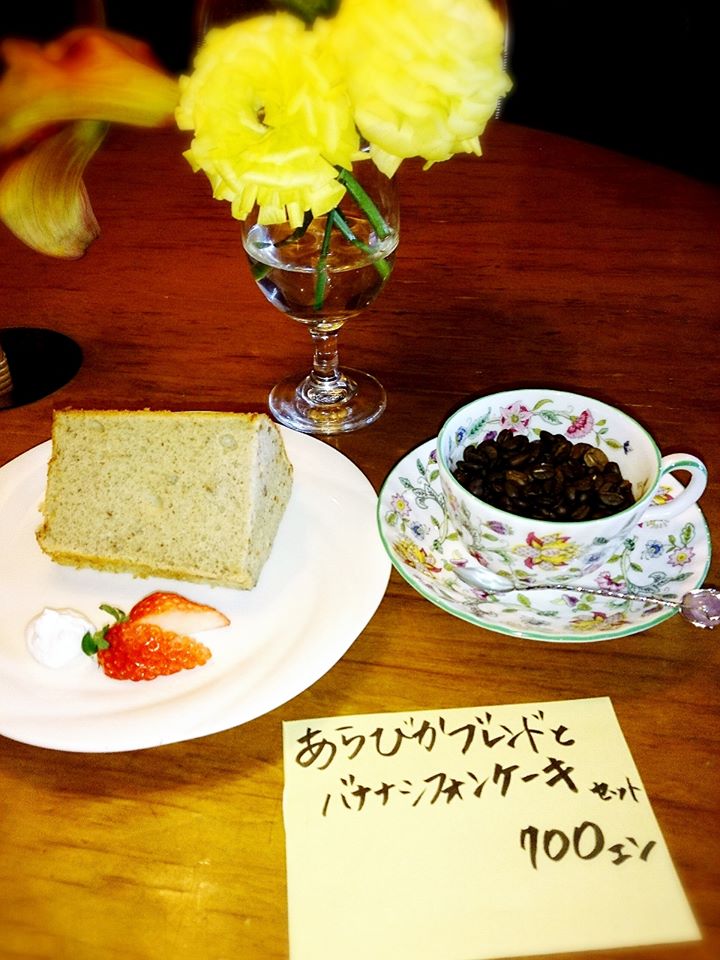 あらびかブレンドと
バナナシフォンケーキ セット
700エン